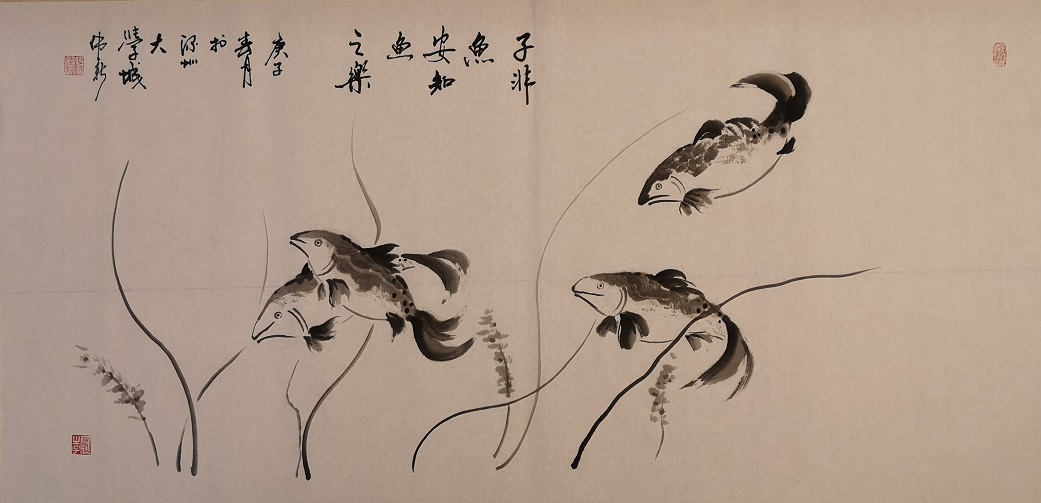 子非
魚
安知
鱼
之樂
庚子
春月
於
深圳
大
學城